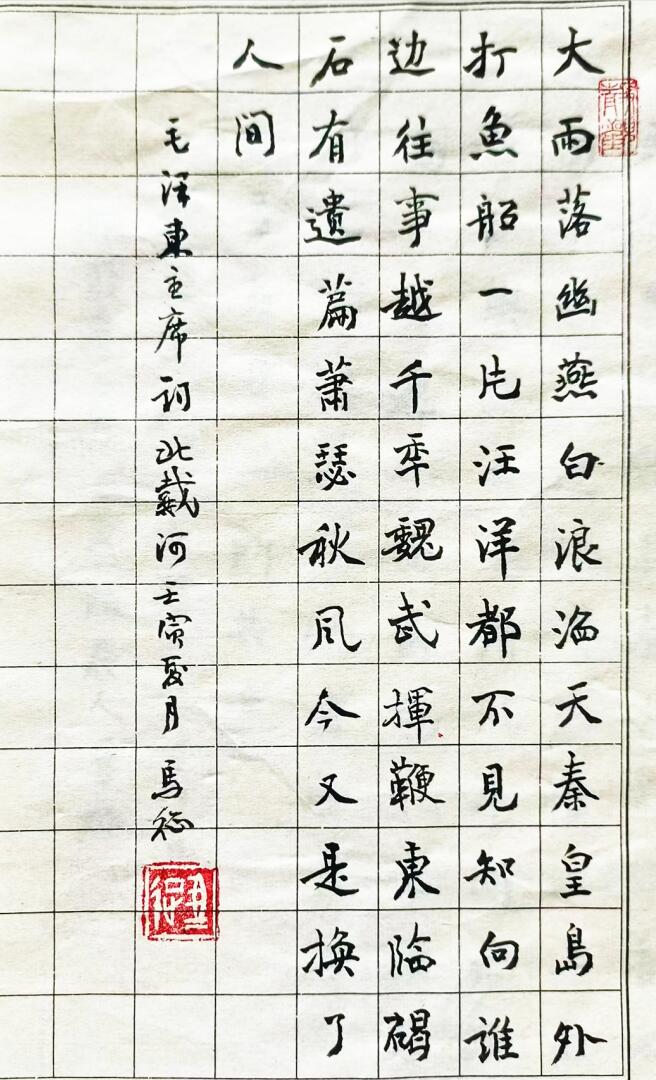 大雨落幽燕白浪滔天秦皇島外
打魚船一片汪洋都不見知向誰
边往事越千年魏武揮鞭東臨碣
石有遺篇蕭瑟秋风今又是換了
人间
毛泽東主席词北戴河壬寅夏月 馬